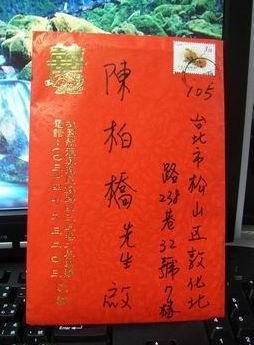 105
台北市松山区敦化北
路238巷32號7樓
陳柏橋先生啟
囍
電話：